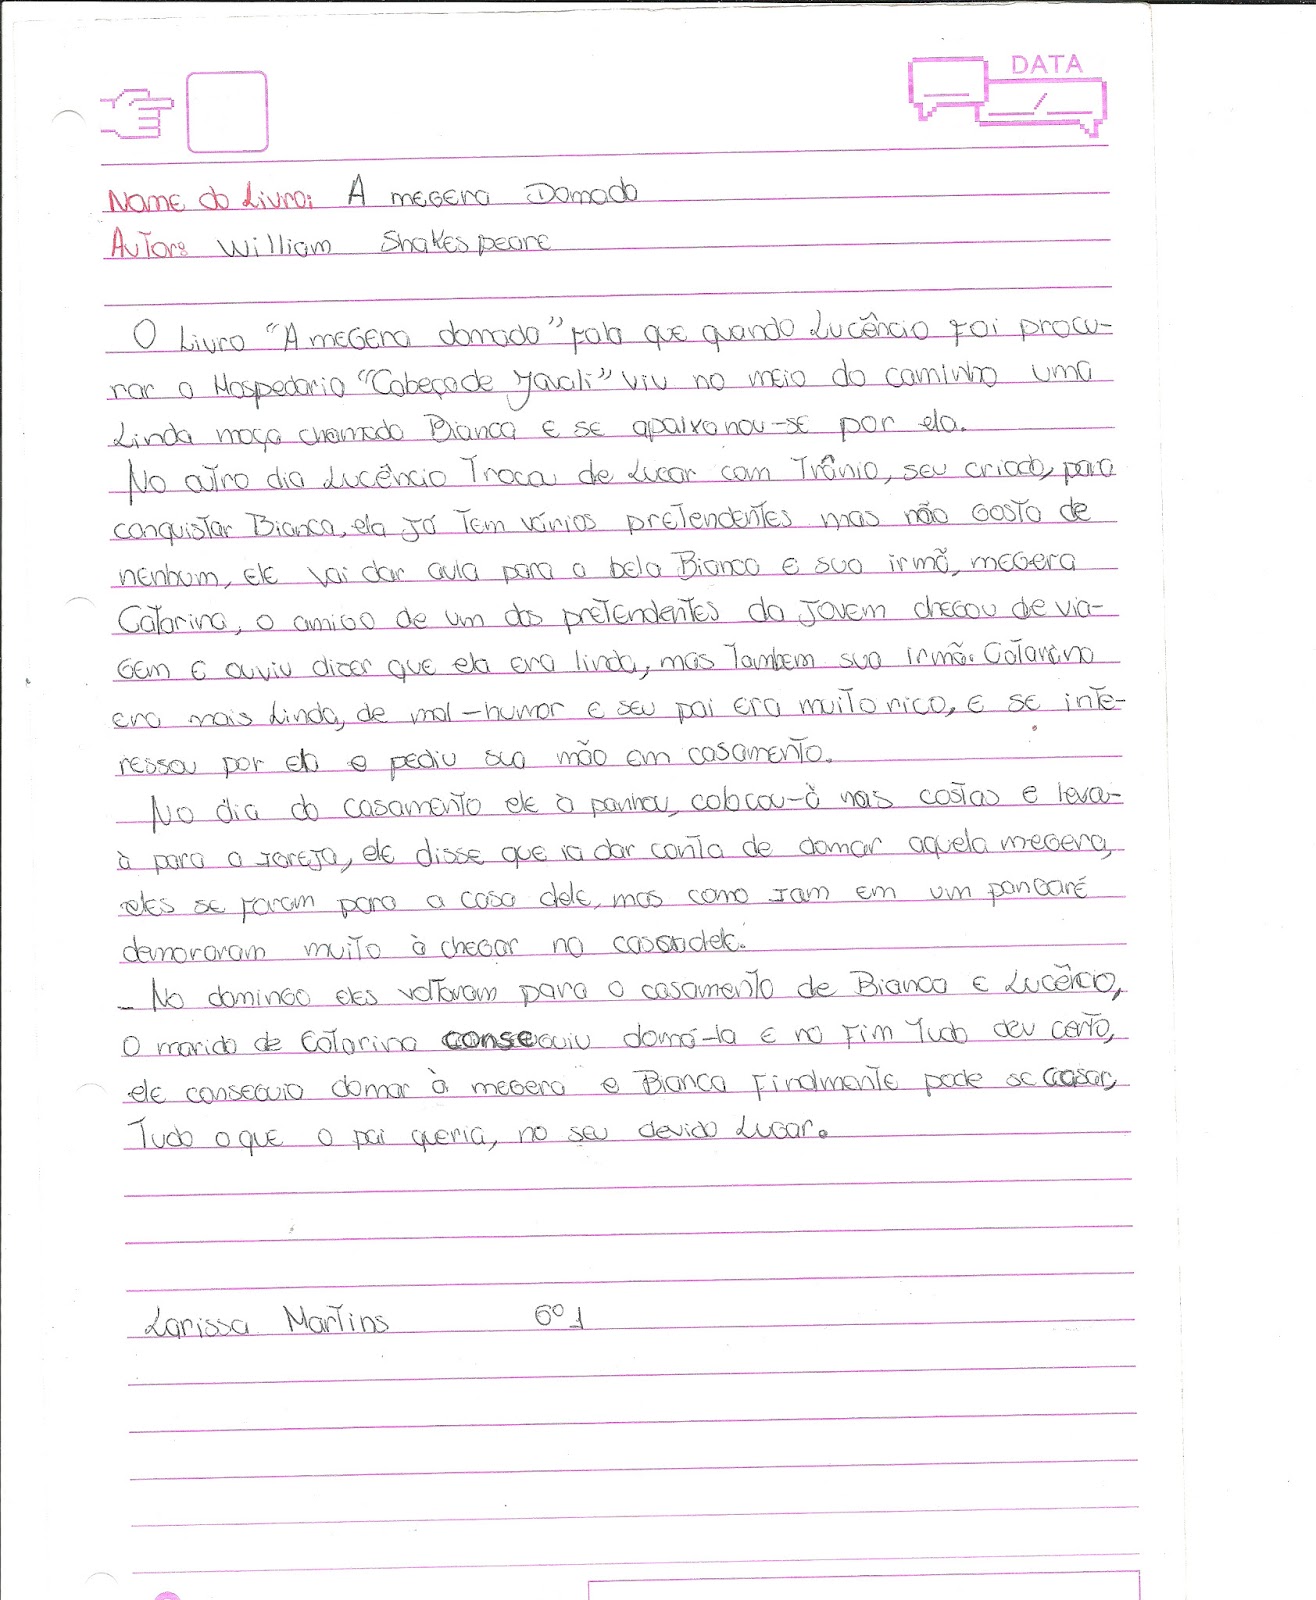 DATA
Nome do Livro: A megera Domada
Autor: William Shakespeare
O Livro "A megera domada" fala que quando Lucêncio foi procu-
rar a Hospedaria "Cabeça de Javali" viu no meio do caminho uma
Linda moça chamada Bianca e se apaixonou-se por ela.
No outro dia Lucêncio Troca de Lugar com Trânio, seu criado, para
conquistar Bianca, ela já tem vários pretendentes mas não gosta de
nenhum, ele vai dar aula para a bela Bianca e sua irmã, megera
Catarina, o amigo de um dos pretendentes da jovem chegou de via-
gem e ouviu dizer que ela era linda, mas também sua irmã. Catarina
era mais Linda, de mal-humor e seu pai era muito rico, e se inte-
ressou por ela e pediu sua mão em casamento.
No dia do casamento ele à panhou, colocou-à nas costas e levou-
à para a igreja, ele disse que ia dar conta de domar aquela megera,
eles se foram para a casa dele, mas como iam em um pangaré
demoraram muito à chegar na casa dele.
- No domingo eles voltaram para o casamento de Bianca e Lucêncio,
O marido de Catarina conseguiu domá-la e no Fim Tudo deu certo,
ele conseguio domar à megera e Bianca Finalmente pode se casar,
Tudo o que o pai queria, no seu devido Lugar.
Larissa Martins 6º 1